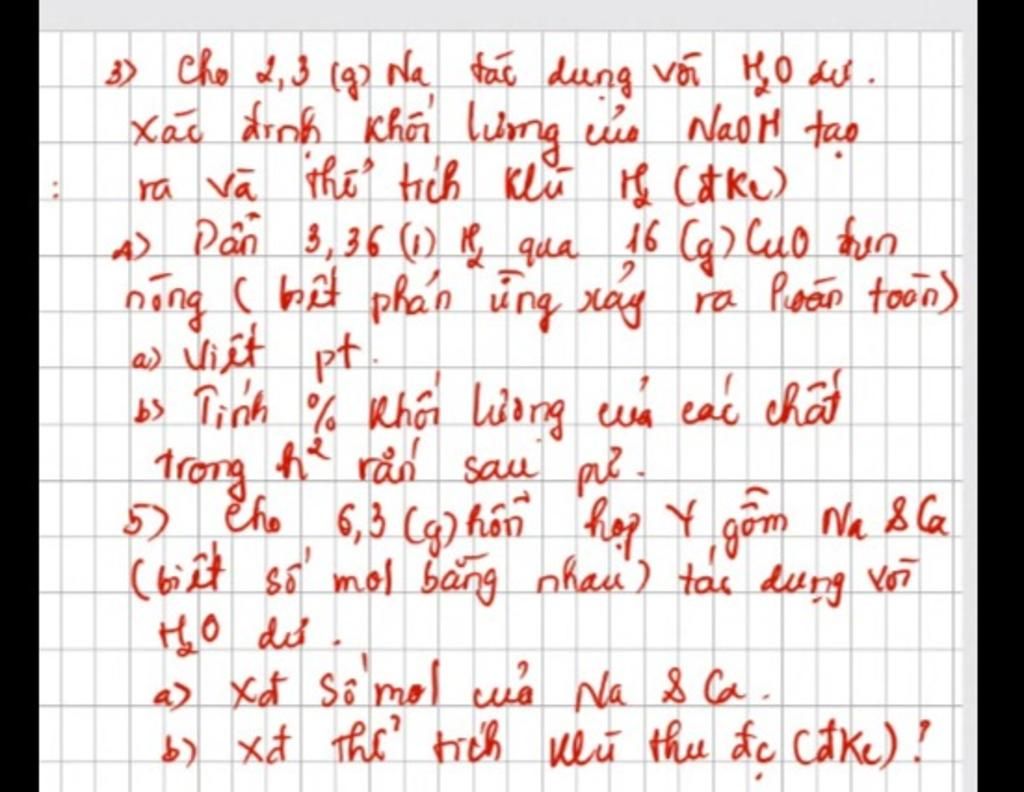 3) Cho 2,3 (g) Na tác dụng với H₂O dư.
Xác định khối lượng của NaOH tạo
: ra và thể tích khí H₂ (đkc)
4) Dẫn 3,36 (l) H₂ qua 16 (g) CuO đun
nóng (biết phản ứng xảy ra hoàn toàn)
a) Viết pt.
b) Tính % khối lượng của các chất
trong h² rắn sau pứ.
5) Cho 6,3 (g) hỗn hợp Y gồm Na & Ca
(biết số mol bằng nhau) tác dụng với
H₂O dư.
a) Xđ số mol của Na & Ca.
b) Xđ thể tích khí thu đc (đkc)?